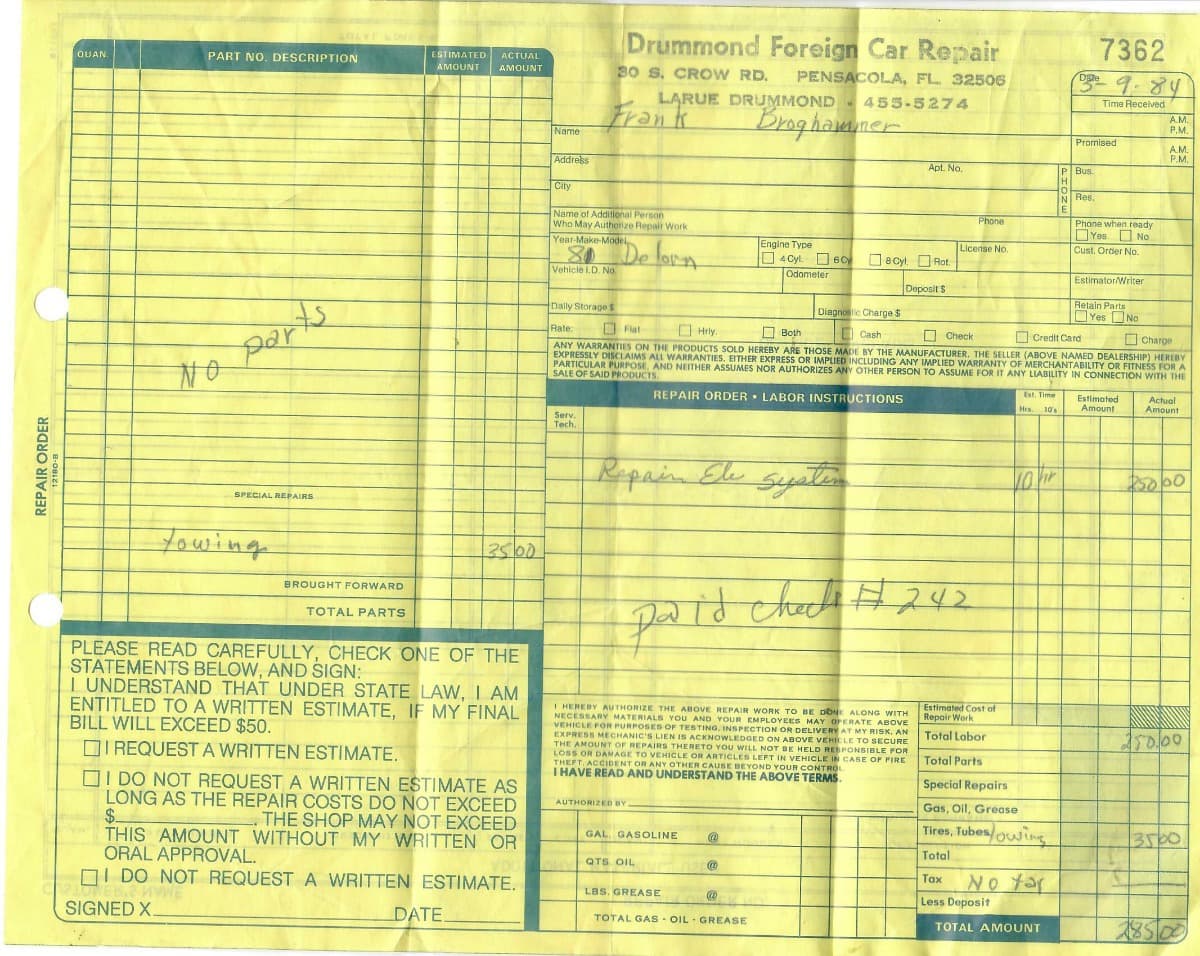 Drummond Foreign Car Repair
30 S. CROW RD. PENSACOLA, FL. 32506
LARUE DRUMMOND • 455-5274
7362
Date 3-9-84
Time Received
A.M.
P.M.
Promised
A.M.
P.M.
Name Frank Broghammer
Address
Apt. No.
City
PHONE
Bus.
Res.
Name of Additional Person
Who May Authorize Repair Work
Phone
Phone when ready
Yes No
Year-Make-Model 81 Delorn
Engine Type
4 Cyl. 6 Cyl. 8 Cyl. Rot.
License No.
Cust. Order No.
Vehicle I.D. No.
Odometer
Deposit $
Estimator/Writer
Daily Storage $
Diagnostic Charge $
Retain Parts
Yes No
Rate: Flat Hrly. Both Cash Check Credit Card Charge
ANY WARRANTIES ON THE PRODUCTS SOLD HEREBY ARE THOSE MADE BY THE MANUFACTURER. THE SELLER (ABOVE NAMED DEALERSHIP) HEREBY
EXPRESSLY DISCLAIMS ALL WARRANTIES, EITHER EXPRESS OR IMPLIED INCLUDING ANY IMPLIED WARRANTY OF MERCHANTABILITY OR FITNESS FOR A
PARTICULAR PURPOSE, AND NEITHER ASSUMES NOR AUTHORIZES ANY OTHER PERSON TO ASSUME FOR IT ANY LIABILITY IN CONNECTION WITH THE
SALE OF SAID PRODUCTS.
QUAN. PART NO. DESCRIPTION ESTIMATED AMOUNT ACTUAL AMOUNT
NO parts
SPECIAL REPAIRS
towing 35 00
BROUGHT FORWARD
TOTAL PARTS
REPAIR ORDER
12180-B
REPAIR ORDER • LABOR INSTRUCTIONS
Est. Time
Hrs. 10's
Estimated Amount
Actual Amount
Serv. Tech.
Repair Ele system 10 hr 250 00
paid check # 242
PLEASE READ CAREFULLY, CHECK ONE OF THE
STATEMENTS BELOW, AND SIGN:
I UNDERSTAND THAT UNDER STATE LAW, I AM
ENTITLED TO A WRITTEN ESTIMATE, IF MY FINAL
BILL WILL EXCEED $50.
I REQUEST A WRITTEN ESTIMATE.
I DO NOT REQUEST A WRITTEN ESTIMATE AS
LONG AS THE REPAIR COSTS DO NOT EXCEED
$ . THE SHOP MAY NOT EXCEED
THIS AMOUNT WITHOUT MY WRITTEN OR
ORAL APPROVAL.
I DO NOT REQUEST A WRITTEN ESTIMATE.
SIGNED X DATE
I HEREBY AUTHORIZE THE ABOVE REPAIR WORK TO BE DONE ALONG WITH
NECESSARY MATERIALS YOU AND YOUR EMPLOYEES MAY OPERATE ABOVE
VEHICLE FOR PURPOSES OF TESTING, INSPECTION OR DELIVERY AT MY RISK. AN
EXPRESS MECHANIC'S LIEN IS ACKNOWLEDGED ON ABOVE VEHICLE TO SECURE
THE AMOUNT OF REPAIRS THERETO YOU WILL NOT BE HELD RESPONSIBLE FOR
LOSS OR DAMAGE TO VEHICLE OR ARTICLES LEFT IN VEHICLE IN CASE OF FIRE
THEFT, ACCIDENT OR ANY OTHER CAUSE BEYOND YOUR CONTROL
I HAVE READ AND UNDERSTAND THE ABOVE TERMS.
AUTHORIZED BY
GAL. GASOLINE @
QTS. OIL @
LBS. GREASE @
TOTAL GAS - OIL - GREASE
Estimated Cost of
Repair Work
Total Labor 250.00
Total Parts
Special Repairs
Gas, Oil, Grease
Tires, Tubes towing 35 00
Total
Tax No tax
Less Deposit
TOTAL AMOUNT 285 00